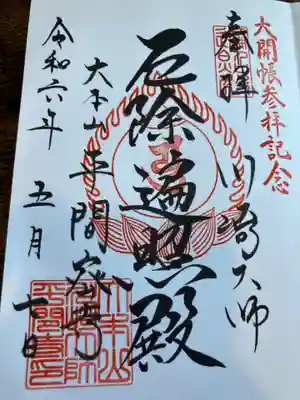 大開帳参拝記念
奉拝
川崎大師
厄除遍照殿
大本山平間寺
令和六年 五月 七日